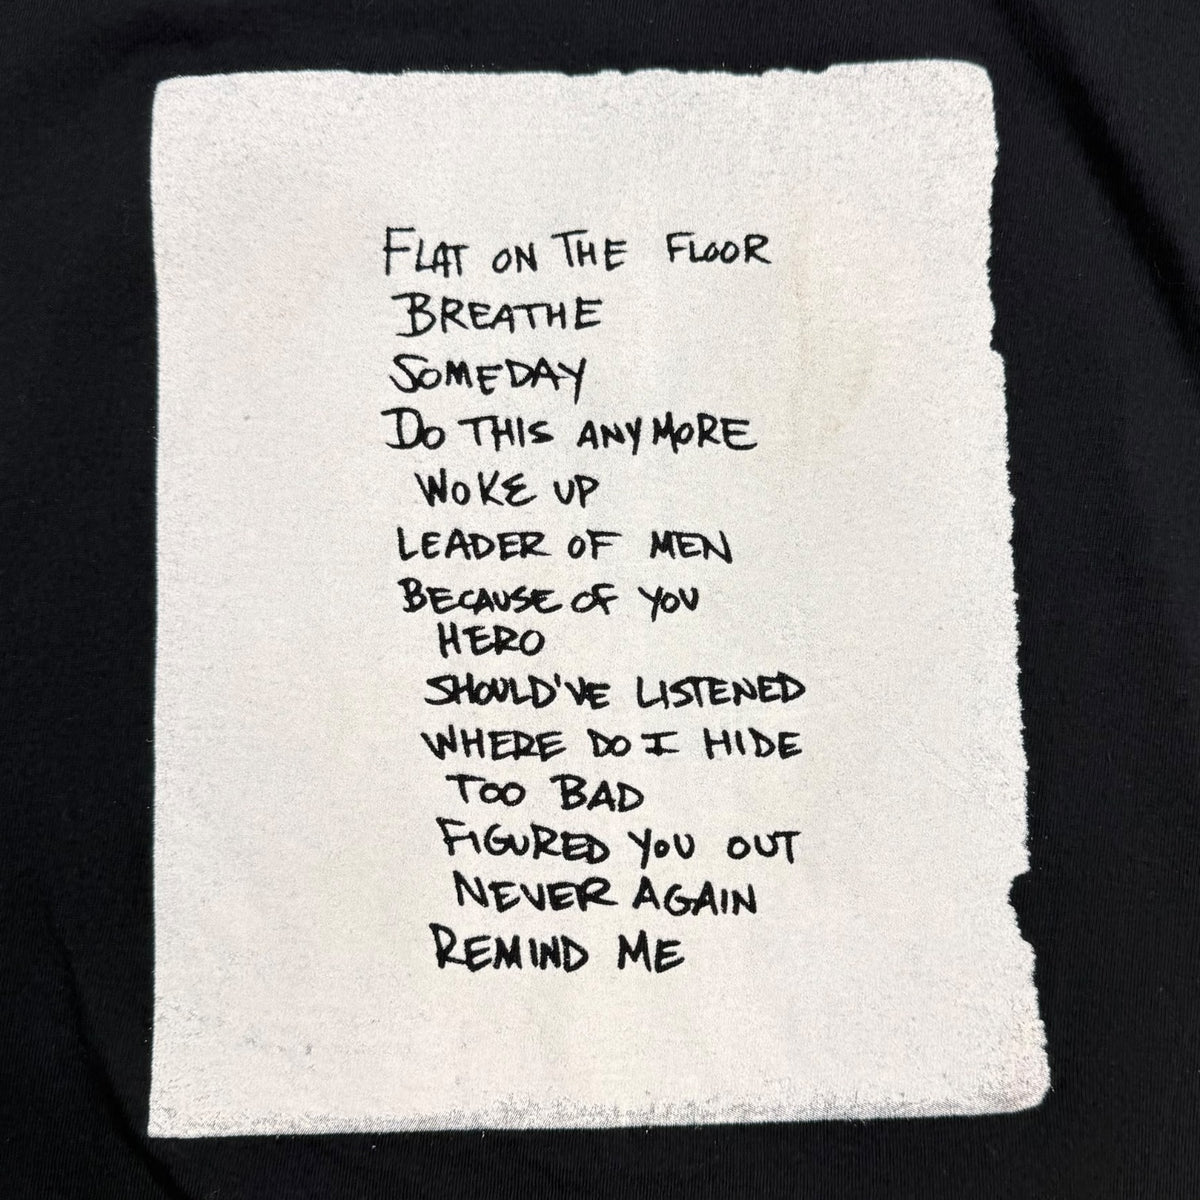 FLAT ON THE FLOOR
BREATHE
SOMEDAY
DO THIS ANYMORE
WOKE UP
LEADER OF MEN
BECAUSE OF YOU
HERO
SHOULD'VE LISTENED
WHERE DO I HIDE
TOO BAD
FIGURED YOU OUT
NEVER AGAIN
REMIND ME